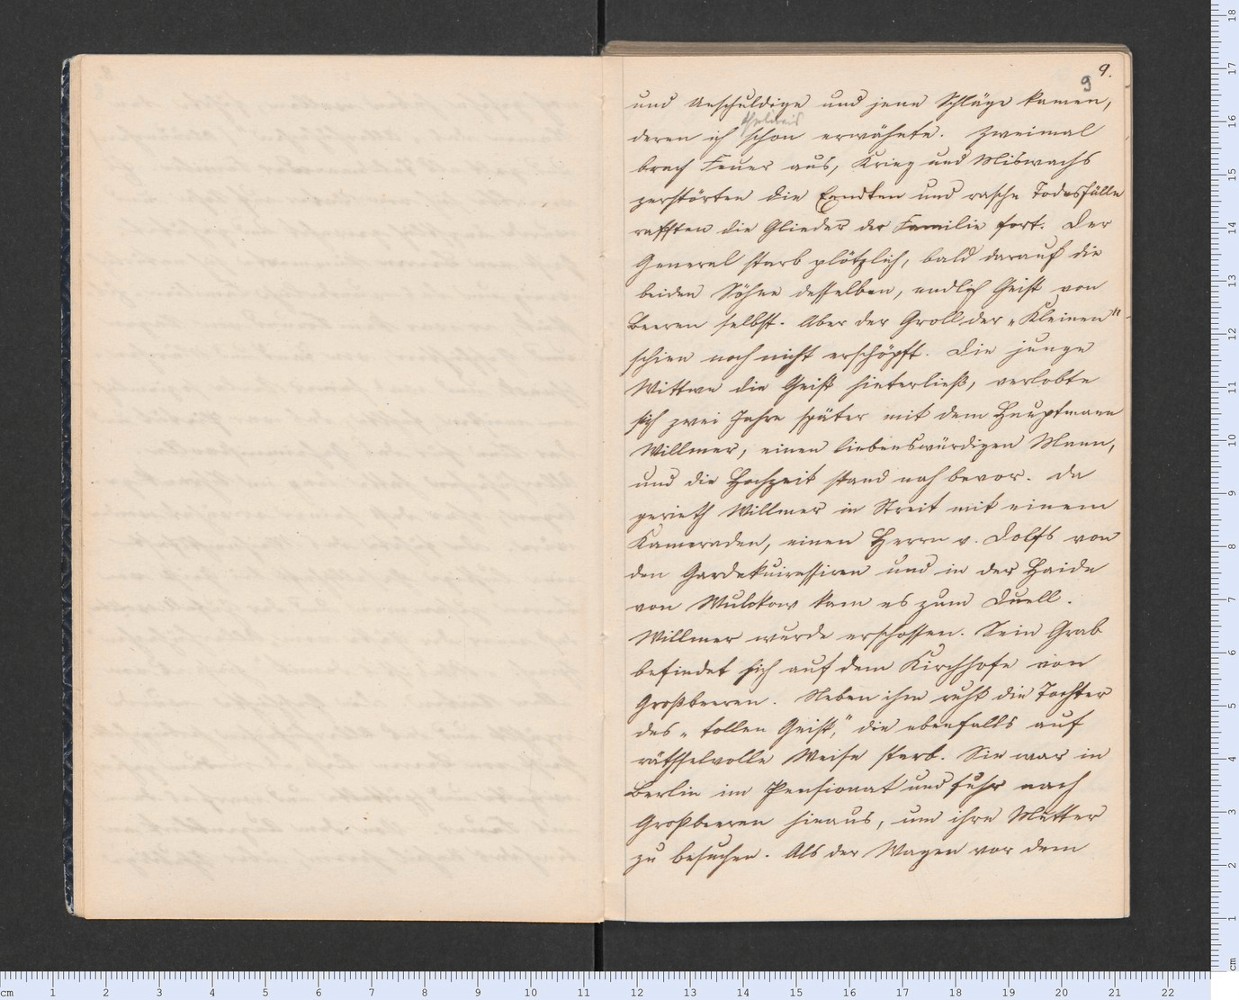 9.
9
und Unschuldige und jene Schläge kamen,
theilweis
deren ich schon erwähnte. Zweimal
brach Feuer aus, Krieg und Miswachs
zerstörten die Erndten und rasche Todesfälle
rafften die Glieder der Familie fort. Der
General starb plötzlich, bald darauf die
beiden Söhne desselben, endlich Geist von
Beeren selbst. Aber der Groll der „Kleinen"
schien noch nicht erschöpft. Die junge
Wittwe die Geist hinterließ, verlobte
sich zwei Jahre später mit dem Hauptmann
Willmer, einen liebenswürdigen Mann,
und die Hochzeit stand nah bevor. Da
gerieth Willmer in Streit mit einem
Kameraden, einen Herrn v. Dolfs von
den Gardekuirassiren und in der Haide
von Wulckow kam es zum Duell.
Willmer wurde erschossen. Sein Grab
befindet sich auf dem Kirchhofe von
Großbeeren. Neben ihm ruht die Tochter
des „tollen Geist", die ebenfalls auf
räthselvolle Weise starb. Sie war in
Berlin im Pensionat und fuhr nach
Großbeeren hinaus, um ihre Mutter
zu besuchen. Als der Wagen vor dem
cm 1 2 3 4 5 6 7 8 9 10 11 12 13 14 15 16 17 18 19 20 21 22
18
17
16
15
14
13
12
11
10
9
8
7
6
5
4
3
2
1
cm